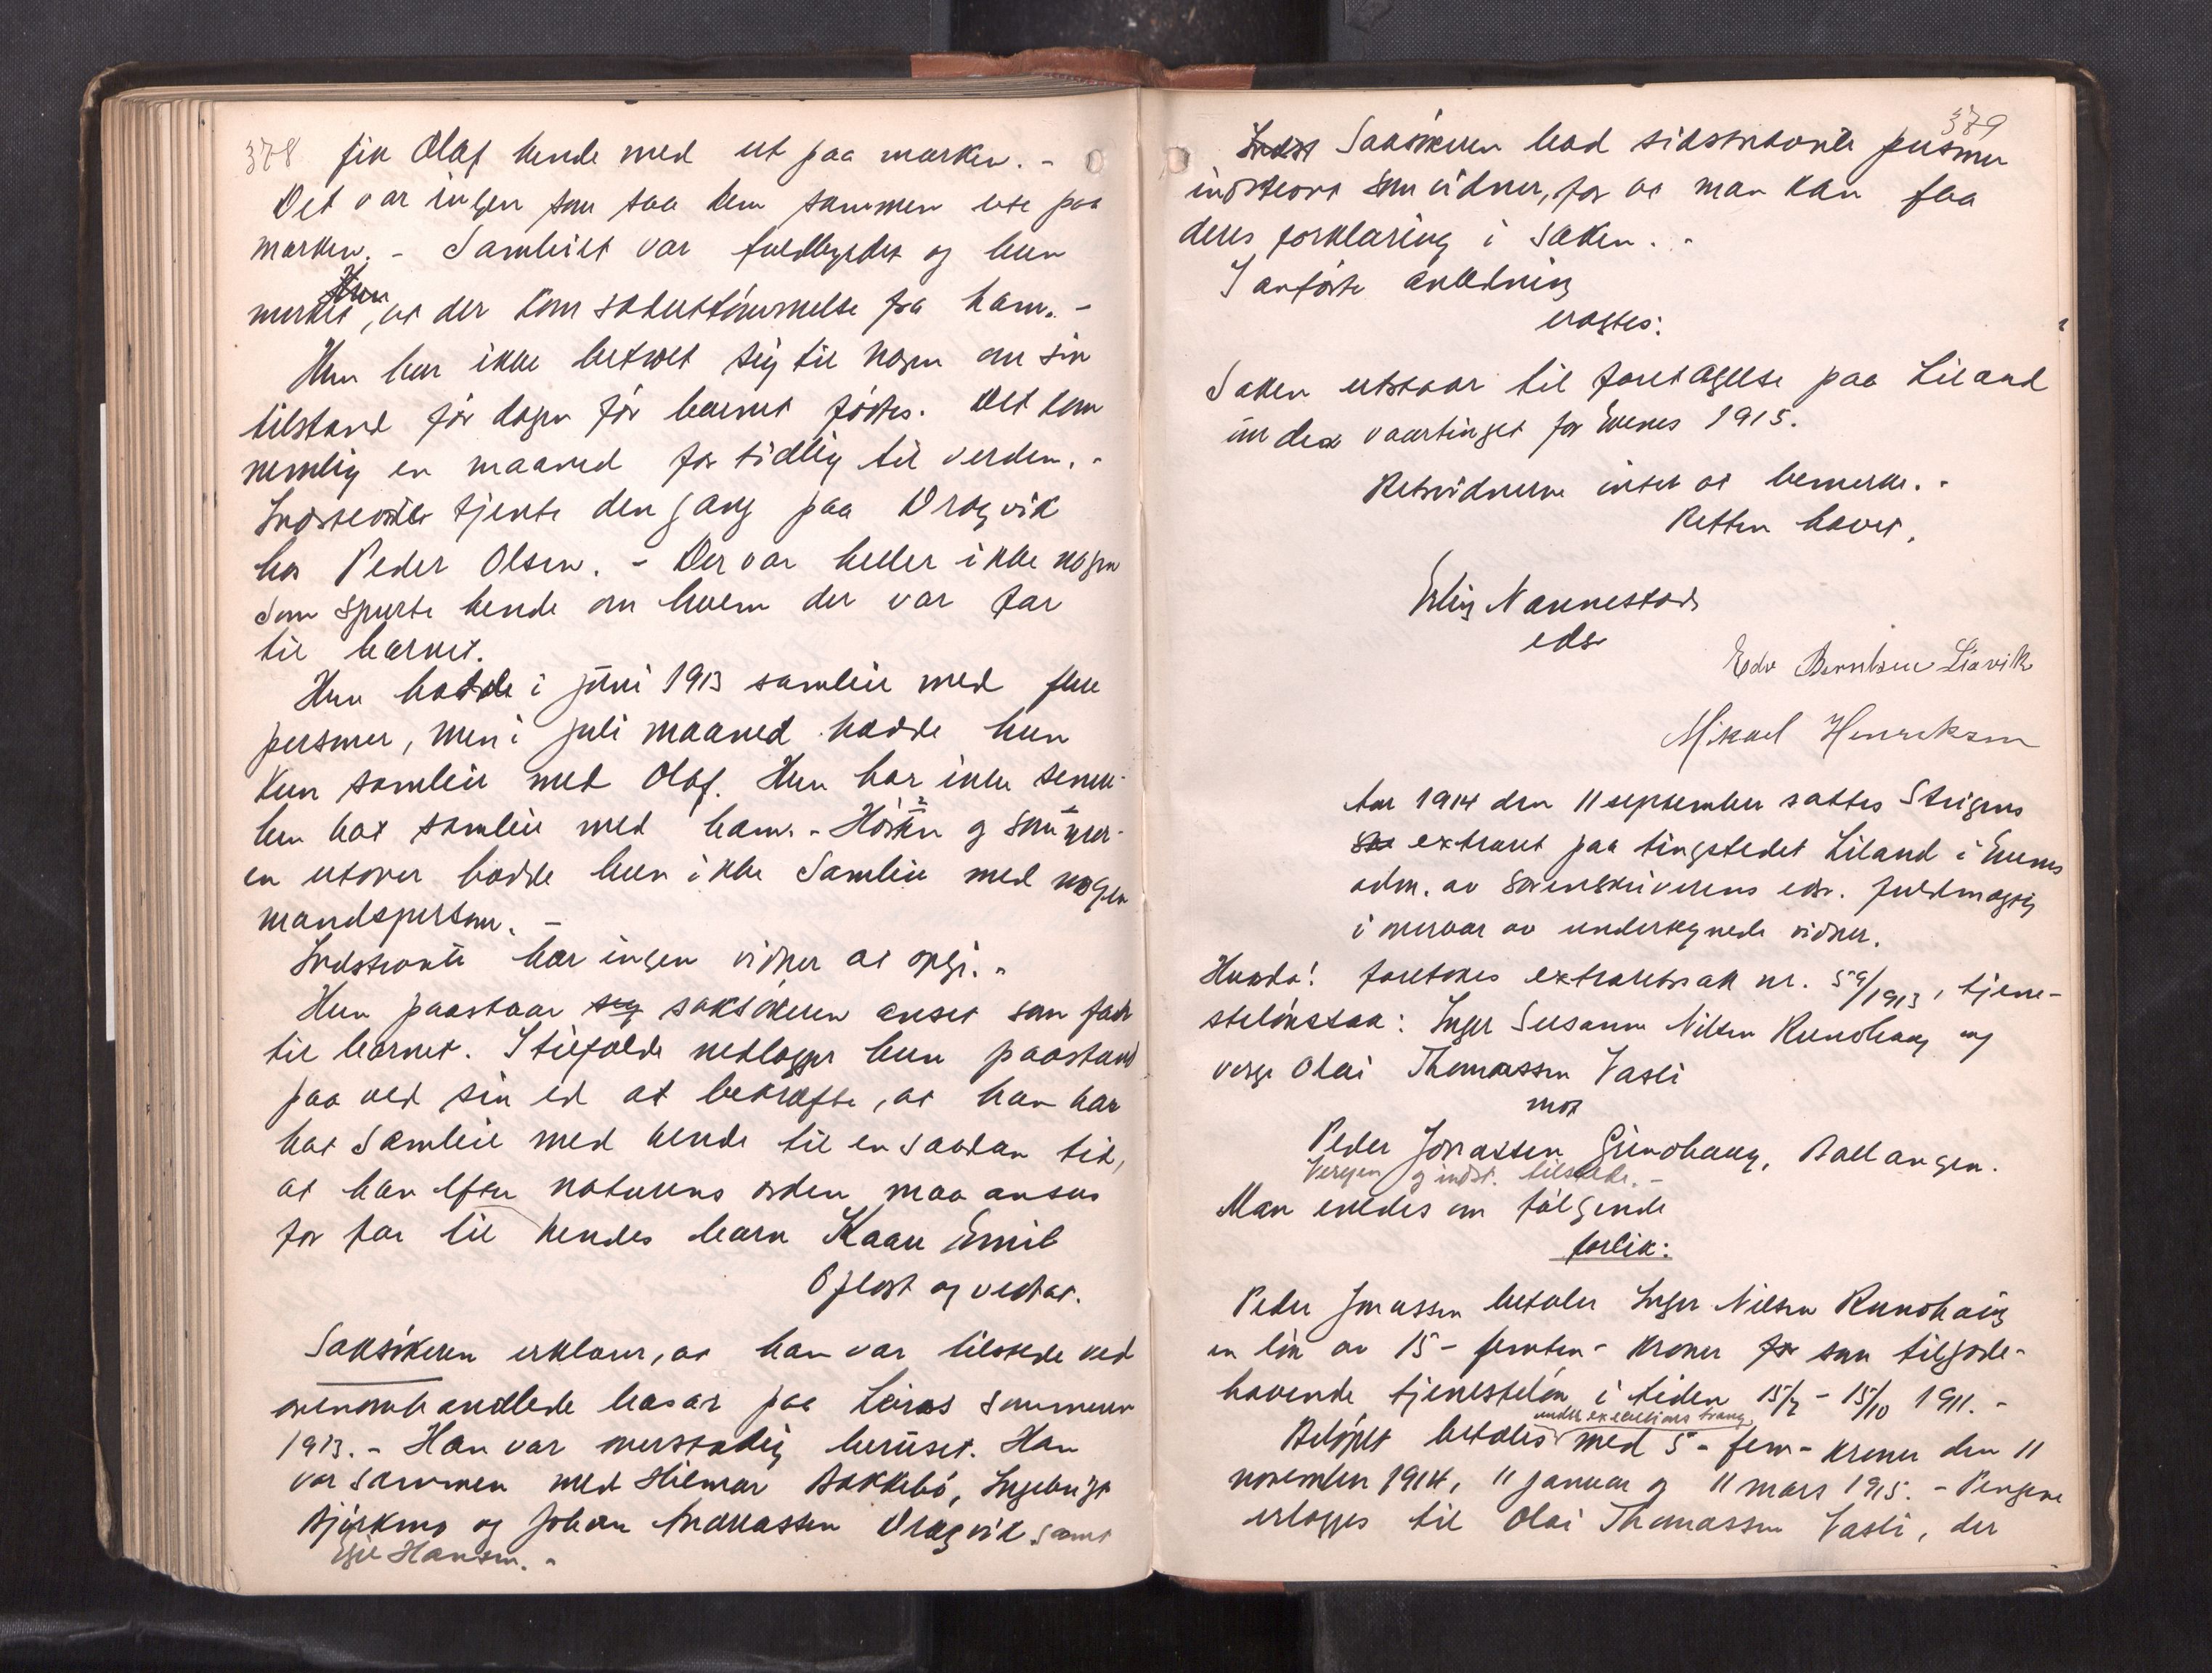 378 fik Olaf hende med ut paa marken. -
Det var ingen som saa dem sammen ute paa
marken. - Samleiet var fuldbyrdet og hun
Hun
merket, at der kom sæduttømmelse fra ham. -
Hun har ikke betrodt sig til nogen om sin
tilstand før dagen før barnet fødtes. Det kom
nemlig en maaned for tidlig til verden. -
Indstevnte tjente dengang paa Dragvik
hos Peder Olsen. - Der var heller ikke nogen
som spurte hende om hvem der var far
til barnet.
Hun hadde i juni 1913 samleie med flere
personer, men i juli maaned hadde hun
kun samleie med Olaf. Hun har ikke senere
hun hat samleie med ham. - Høsten og sommer-
en utover hadde hun ikke samleie med nogen
mandsperson. -
Indstevnte har ingen vidner at opgi. -
Hun paastaar sig saksøkeren anset som far
til barnet. I tilfælde nedlægger hun paastand
paa ved sin ed at bekræfte, at han har
hat samleie med hende til en saadan tid,
at han efter naturens orden maa anses
for far til hendes barn Kaare Emil
Oplæst og vedtat.
Saksøkeren erklærer, at han var tilstede ved
ovenomhandlede basar paa Leiros sommeren
1913. - Han var overstadig beruset. Han
var sammen med Hilmar Bakkebø, Ingebrigt
Bjørkmo og Johan Andreassen Dragvik samt
Egil Hansen. -
379
Indst Saksøkeren bad sidstnævnte personer
indstevnt som vidner, for at man kan faa
deres forklaring i saken. -
I anførte anledning
eragtes:
Saken utstaar til foretagelse paa Liland
under vaartinget for Evenes 1915.
Retsvidnerne intet at bemerke. -
Retten hævet.
Erling Nannestad
eds
Edv Berntsen Liavik
Mikael Henriksen
Aar 1914 den 11 september sattes Steigens
extraret paa tingstedet Liland i Evenes
adm. av sorenskriverens eds. fuldmægtig
i overvær av undertegnede vidner.
Hvorda! foretokes extraretssak nr. 59/1913, tjene-
stelønssak: Inger Susanne Nilsen Rundhaug og
verge Olai Thomassen Vasli
mot
Peder Jonassen Grindhaug, Ballangen.
Vergen og indst. tilstede. -
Man enedes om følgende
forlik:
Peder Jonassen betaler Inger Nilsen Rundhaug
en løn av 15 - femten - kroner for som tilgode-
havende tjenesteløn i tiden 15/7 - 15/10 1911. -
under executions tvang
Beløpet betales med 5 - fem - kroner den 11
november 1914, 11 januar og 11 mars 1915. - Pengene
erlægges til Olai Thomassen Vasli, der